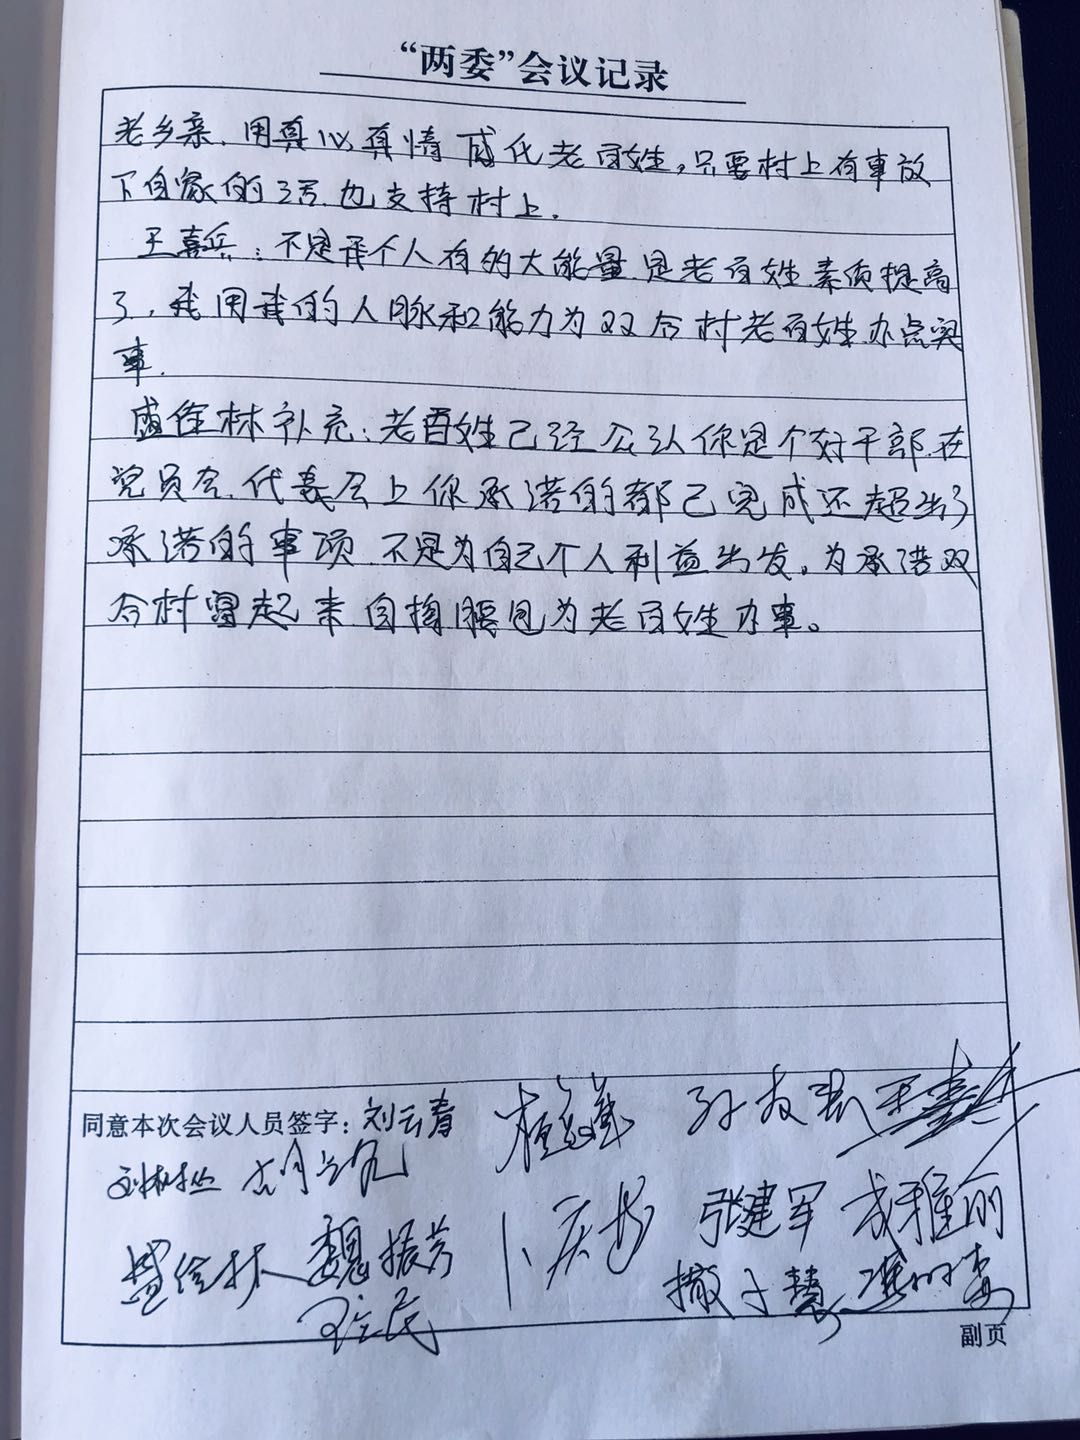 “两委”会议记录
老乡亲、用真心真情感化老百姓，只要村上有事放
下自家的活也支持村上。
王喜兵：不是我个人有的大能量是老百姓素质提高
了，我用我的人脉和能力为双合村老百姓办点实
事.
盛俭林补充：老百姓已经公认你是个好干部.在
党员会、代表会上你承诺的都已完成还超出了
承诺的事项.不是为自己个人利益出发。为承诺双
合村富起来自掏腰包为老百姓办事。
同意本次会议人员签字：刘云春
张建军 成雅丽
魏振芳
副页